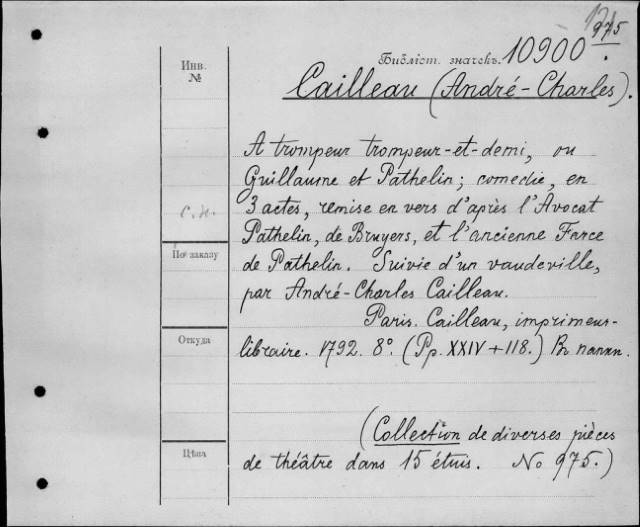 975
Библіот. значекъ. 10900
Cailleau (André-Charles).
Инв.
№
A trompeur trompeur-et-demi, ou
Guillaume et Pathelin; comedie, en
3 actes, remise en vers d'après l'Avocat
с.н.
Pathelin, de Bruyers, et l'ancienne Farce
По заказу
de Pathelin. Suivie d'un vaudeville,
par André-Charles Cailleau.
Paris. Cailleau, imprimeur-
Откуда
libraire. 1792. 8º. (Pp. XXIV+118.) Въ папкѣ.
(Collection de diverses pièces
Цѣна
de théâtre dans 15 étuis. No 975.)